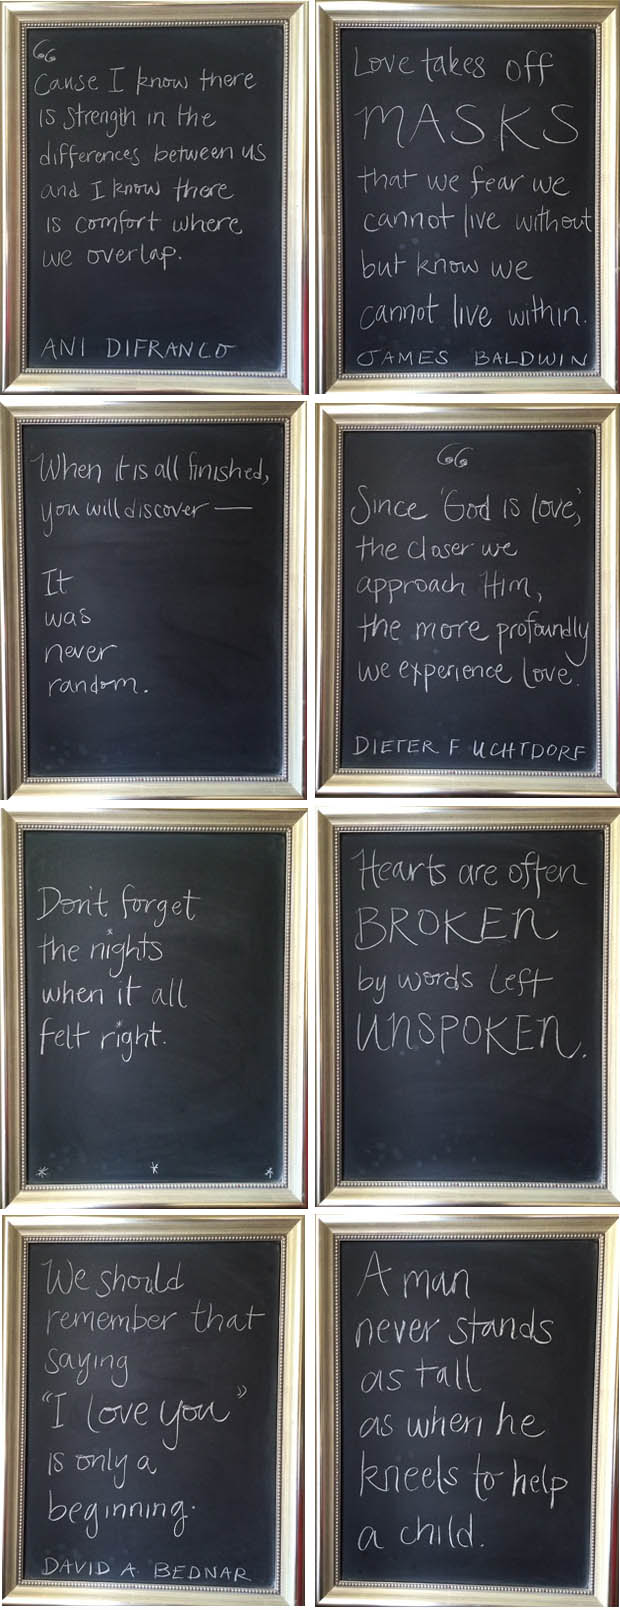 “
Cause I know there
is strength in the
differences between us
and I know there
is comfort where
we overlap.
ANI DIFRANCO
Love takes off
MASKS
that we fear we
cannot live without
but know we
cannot live within.
JAMES BALDWIN
When it is all finished,
you will discover —
It
was
never
random.
“
Since 'God is love,'
the closer we
approach Him,
the more profoundly
we experience love.
DIETER F UCHTDORF
Don't forget
the nights
when it all
felt right.
* * *
Hearts are often
BROKEN
by words left
UNSPOKEN.
We should
remember that
saying
"I love you"
is only a
beginning.
DAVID A. BEDNAR
A man
never stands
as tall
as when he
kneels to help
a child.